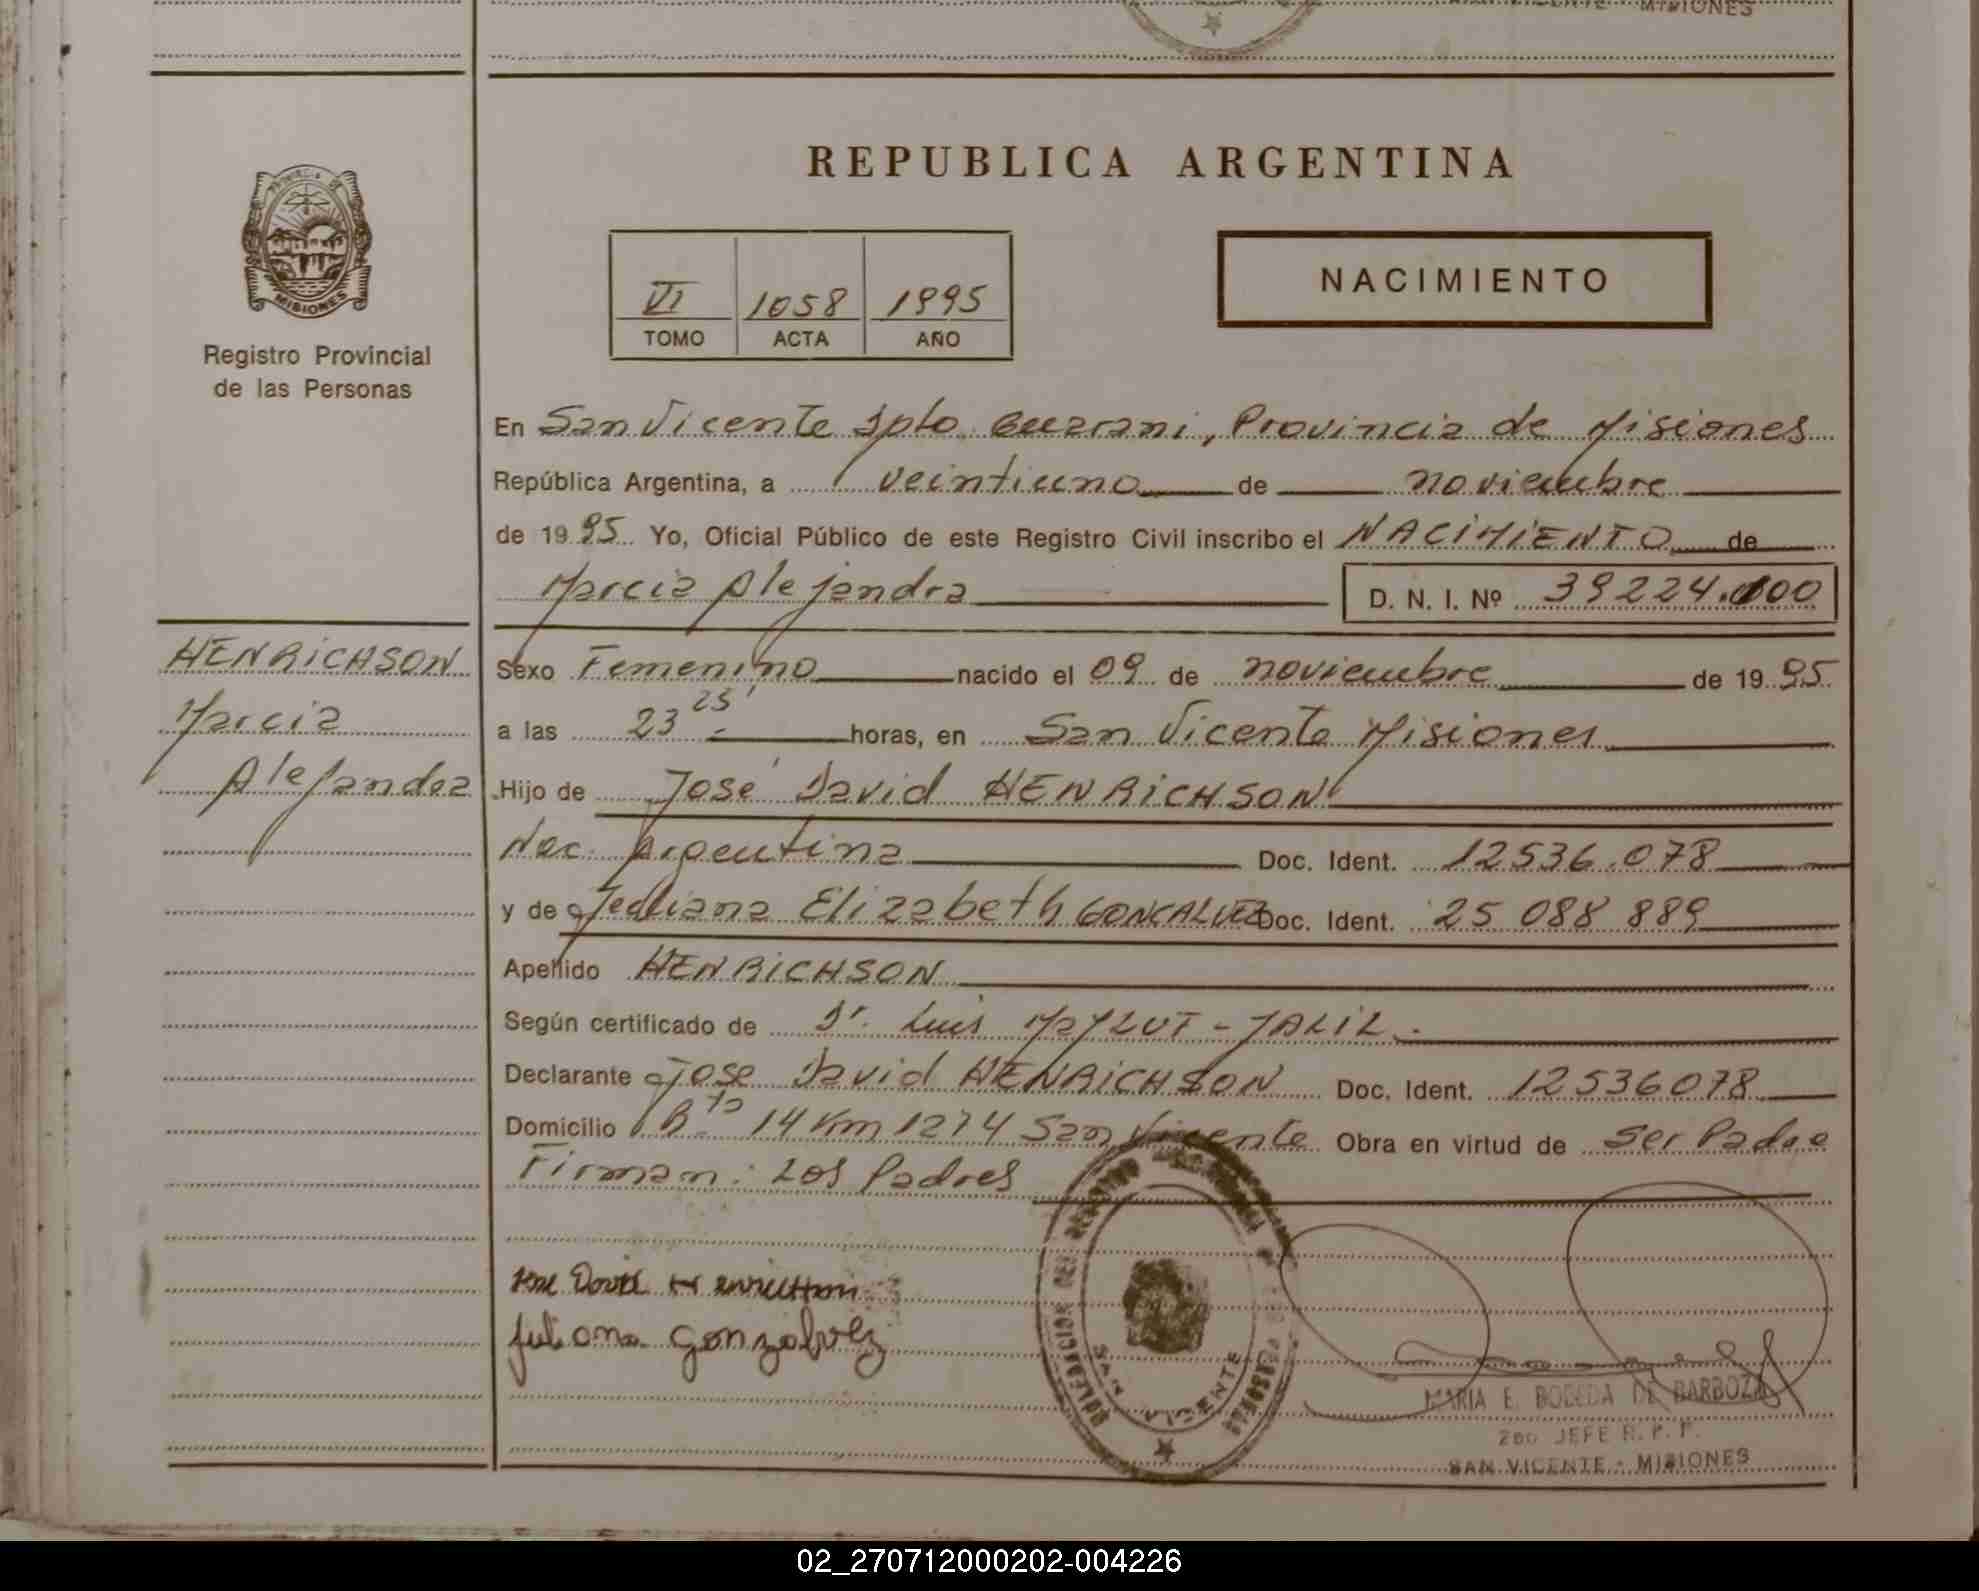 MISIONES
REPUBLICA ARGENTINA
PROVINCIA DE
MISIONES
Registro Provincial
de las Personas
VI 1058 1995
TOMO ACTA AÑO
NACIMIENTO
En San Vicente Dpto Guarani, Provincia de Misiones
República Argentina, a veintiuno de noviembre
de 1995 Yo, Oficial Público de este Registro Civil inscribo el NACIMIENTO de
Marcia Alejandra D. N. I. Nº 39224.100
HENRICHSON
Marcia
Alejandra
Sexo Femenino nacido el 09 de noviembre de 1995
a las 23 25' horas, en San Vicente Misiones
Hijo de José David HENRICHSON
Nac. Argentina Doc. Ident. 12536.078
y de Juliana Elizabeth GONCALVEZ Doc. Ident. 25 088 889
Apellido HENRICHSON
Según certificado de Dr. Luis MAYLUT - JALIL.
Declarante José David HENRICHSON Doc. Ident. 12536078
Domicilio Bº 14 Km 1274 San Vicente Obra en virtud de Ser Padre
Firman: Los Padres
Jose David Henrichson
Juliana Gonzalvez
DELEGACION DEL REGISTRO PROVINCIAL DE LAS PERSONAS
SAN VICENTE
MARIA E. BOBEDA DE BARBOZA
2do JEFE R. P. P.
SAN VICENTE - MISIONES
02_270712000202-004226